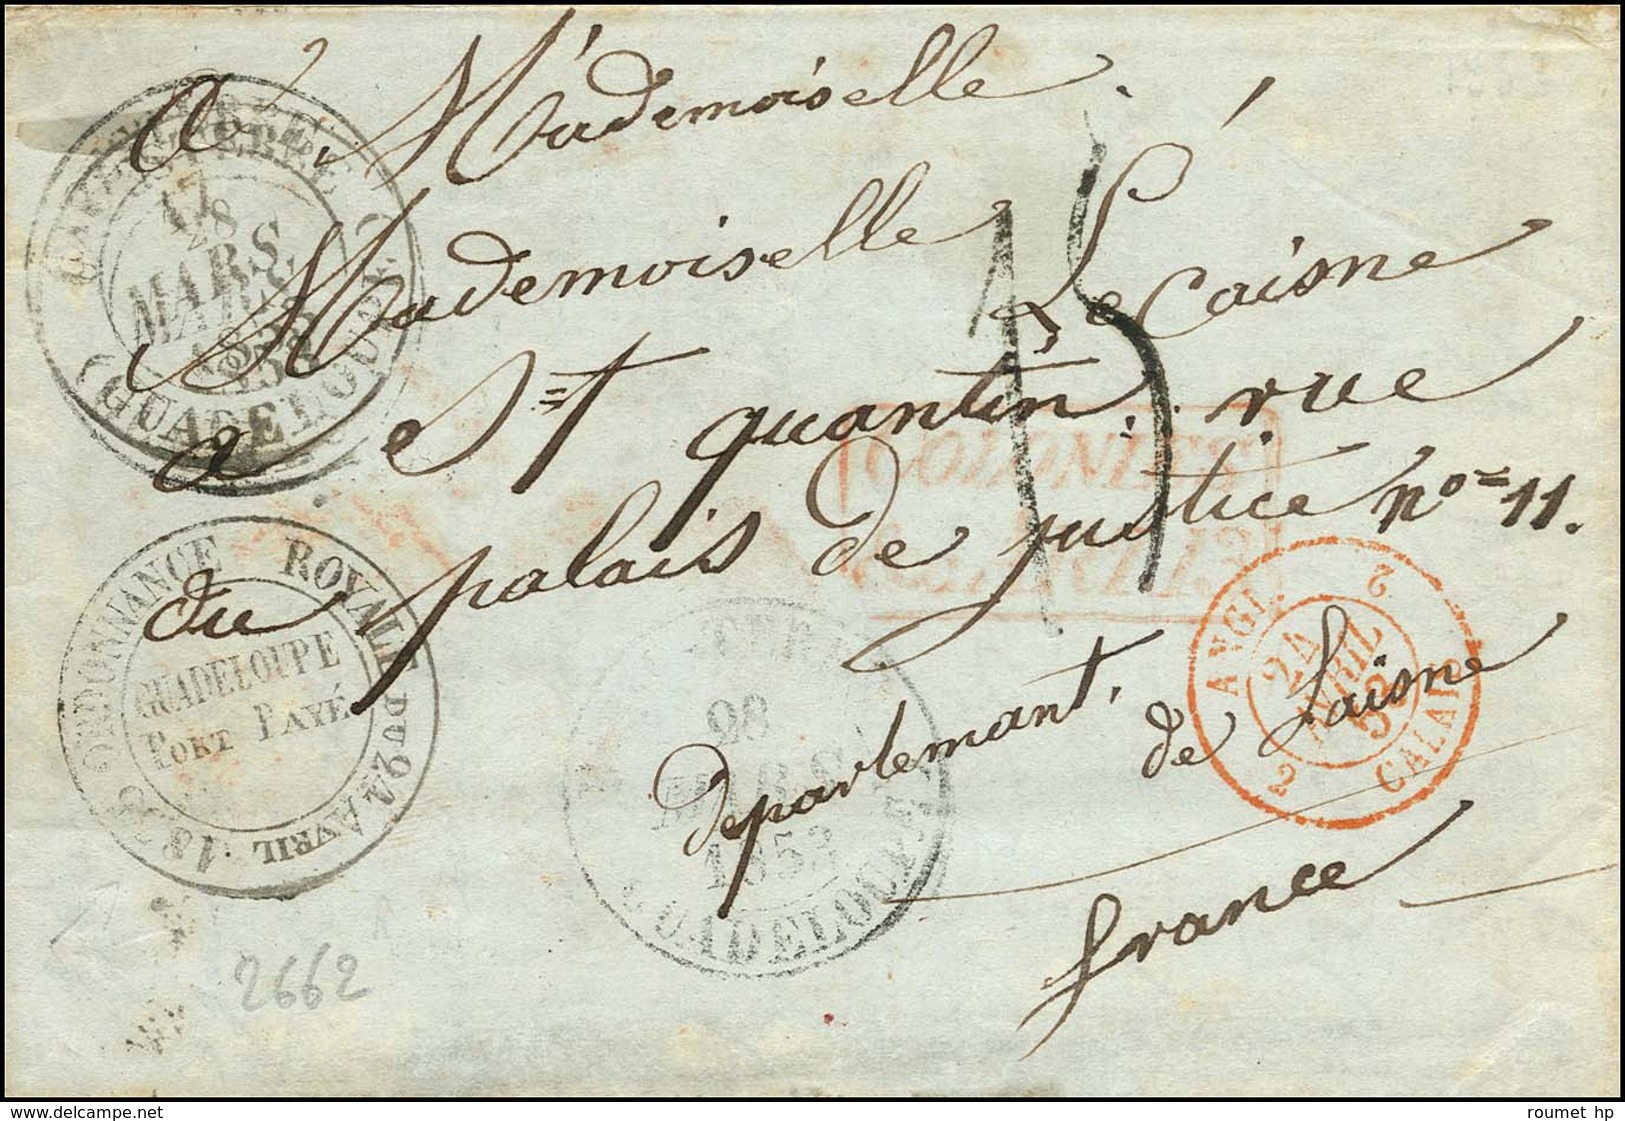 à Mademoiselle
Mademoiselle Le Caisne
a St quantin rue
du palais de justice no= 11.
departemant de Laisne
france
15
17
28
MARS
MARS
(GUADELOUPE)
ORDONNANCE ROYALE DU 24 AVRIL
GUADELOUPE
PORT PAYÉ
28
MARS
1853
GUADELOUPE
COLONIES
ANGL.
2
24
AVRIL
53
2
CALAIS
2662
www.delcampe.net
roumet hp